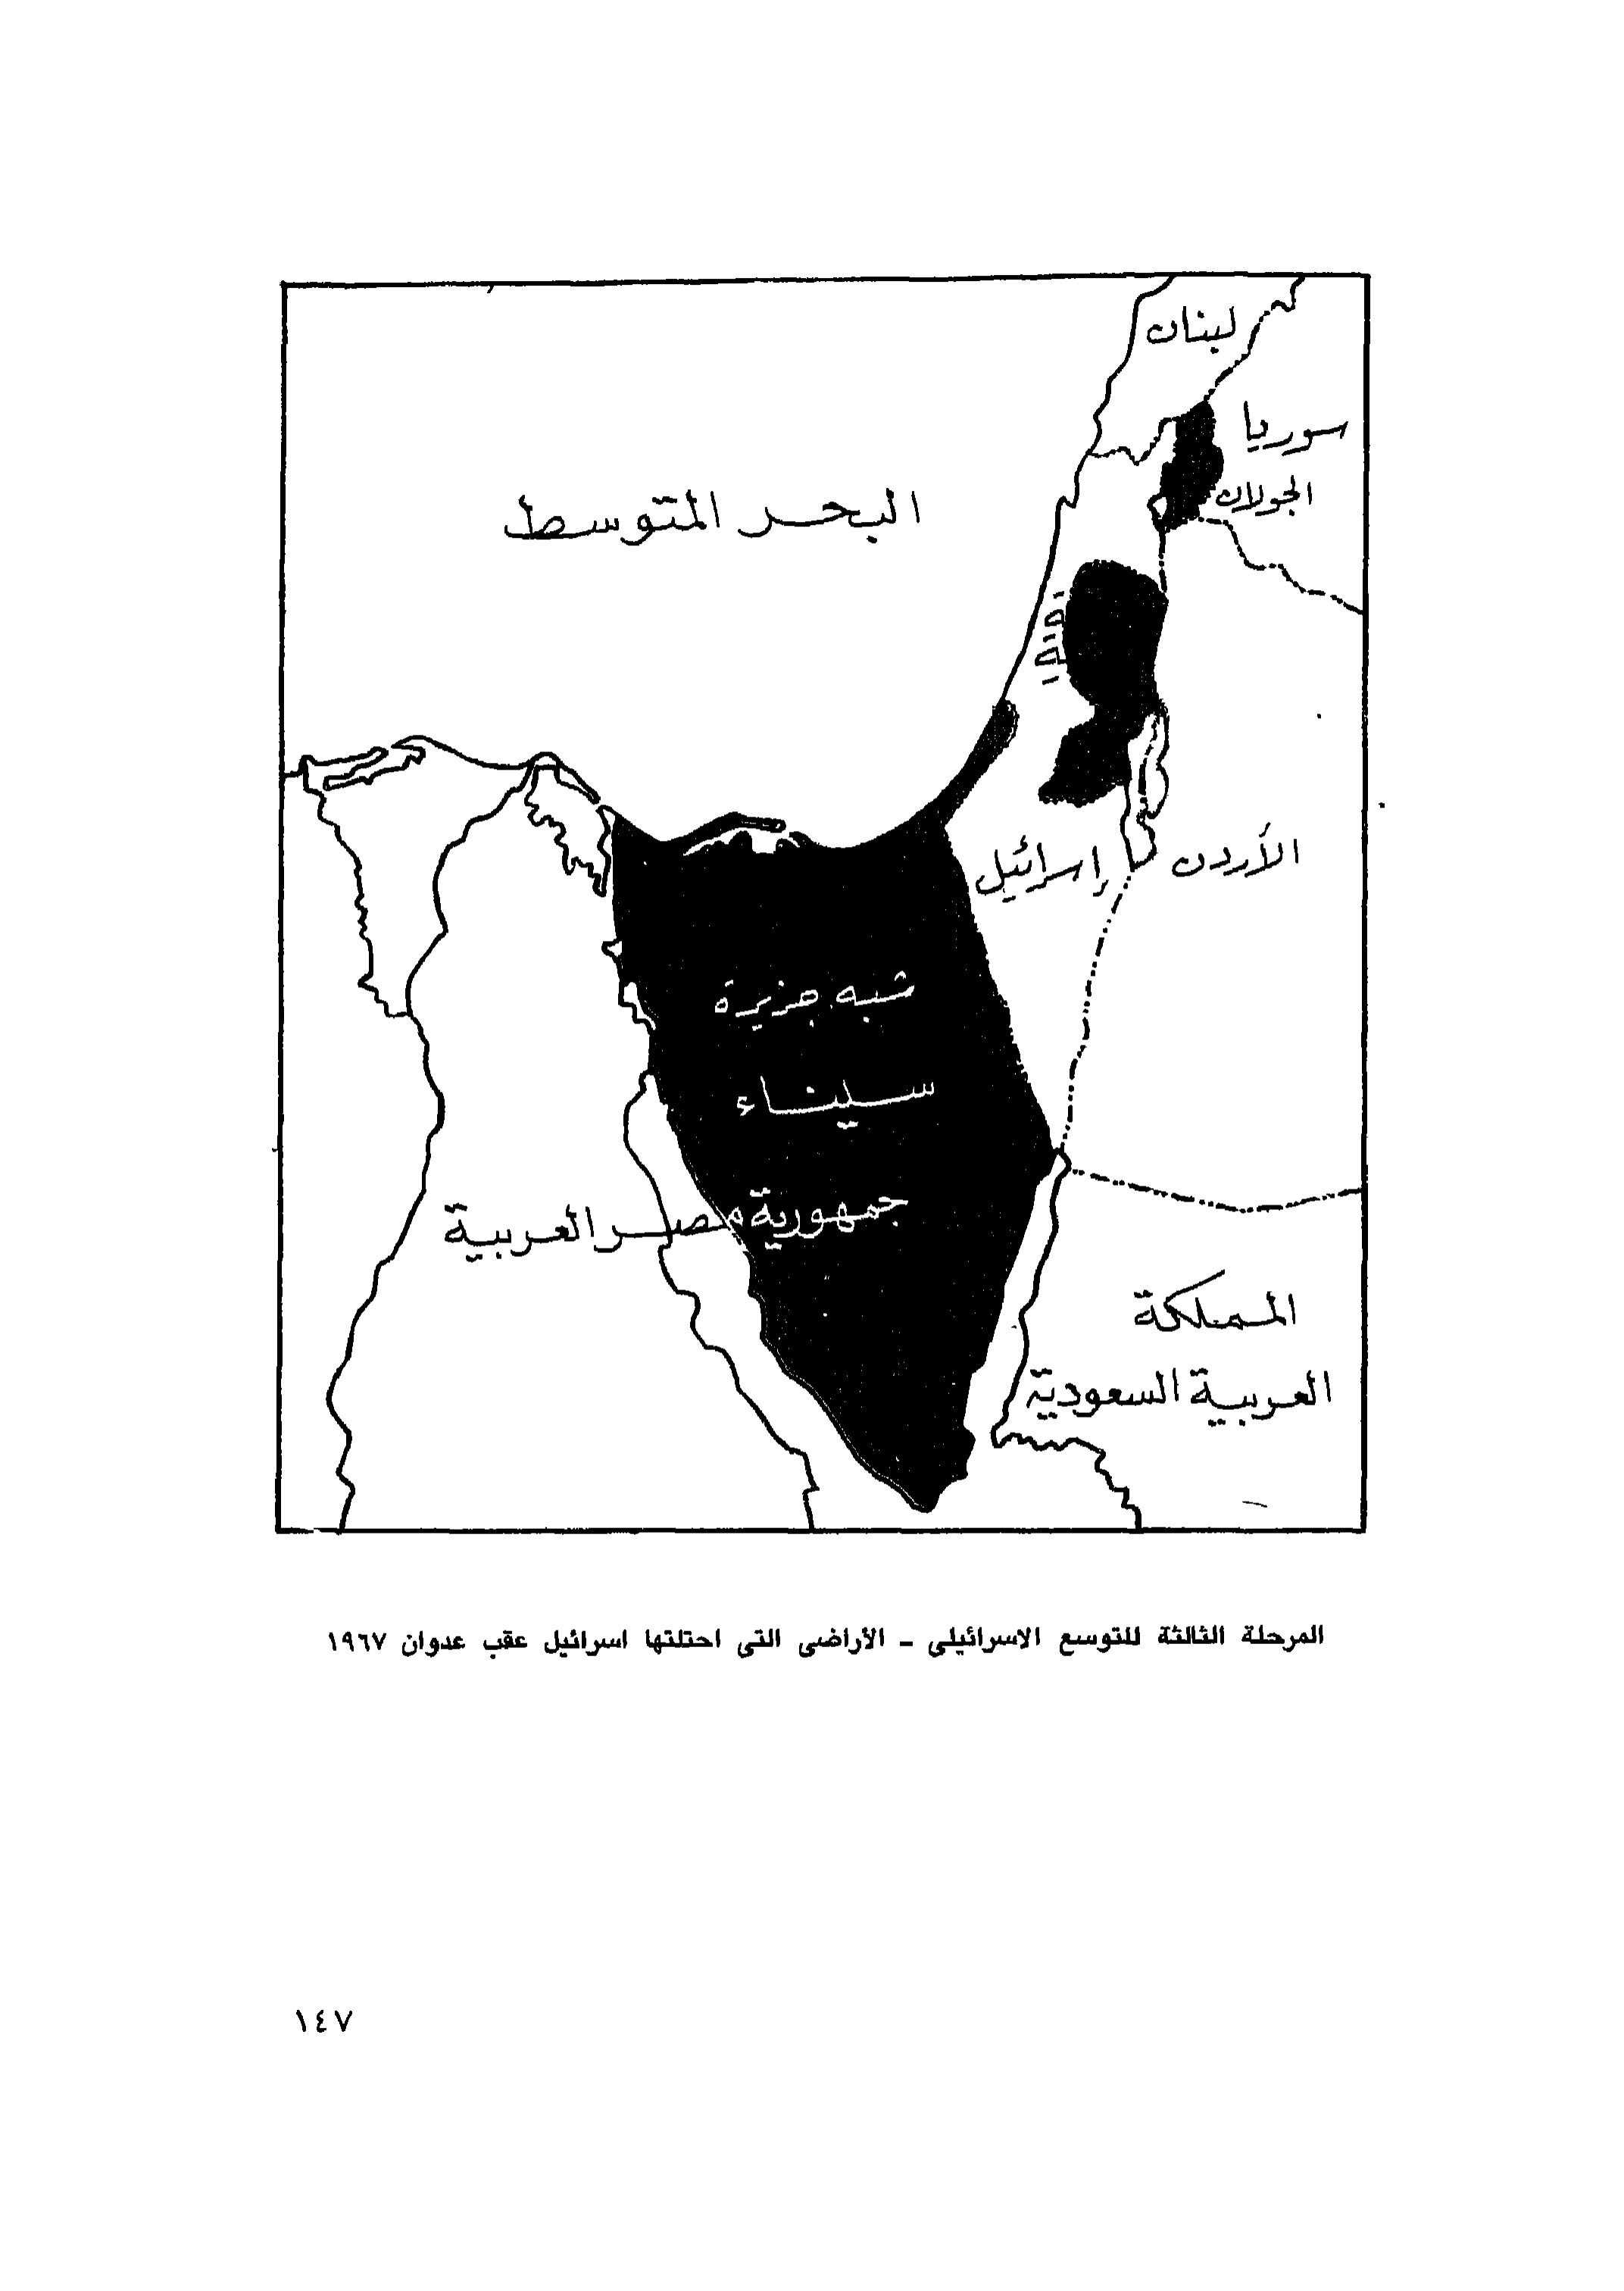 لبنان
سوريا
الجولان
البحر المتوسط
إسرائيل
الأردن
شبه جزيرة
سيناء
جمهورية مصر العربية
المملكة
العربية السعودية
المرحلة الثالثة للتوسع الاسرائيلى - الأراضى التى احتلتها اسرائيل عقب عدوان ١٩٦٧
١٤٧